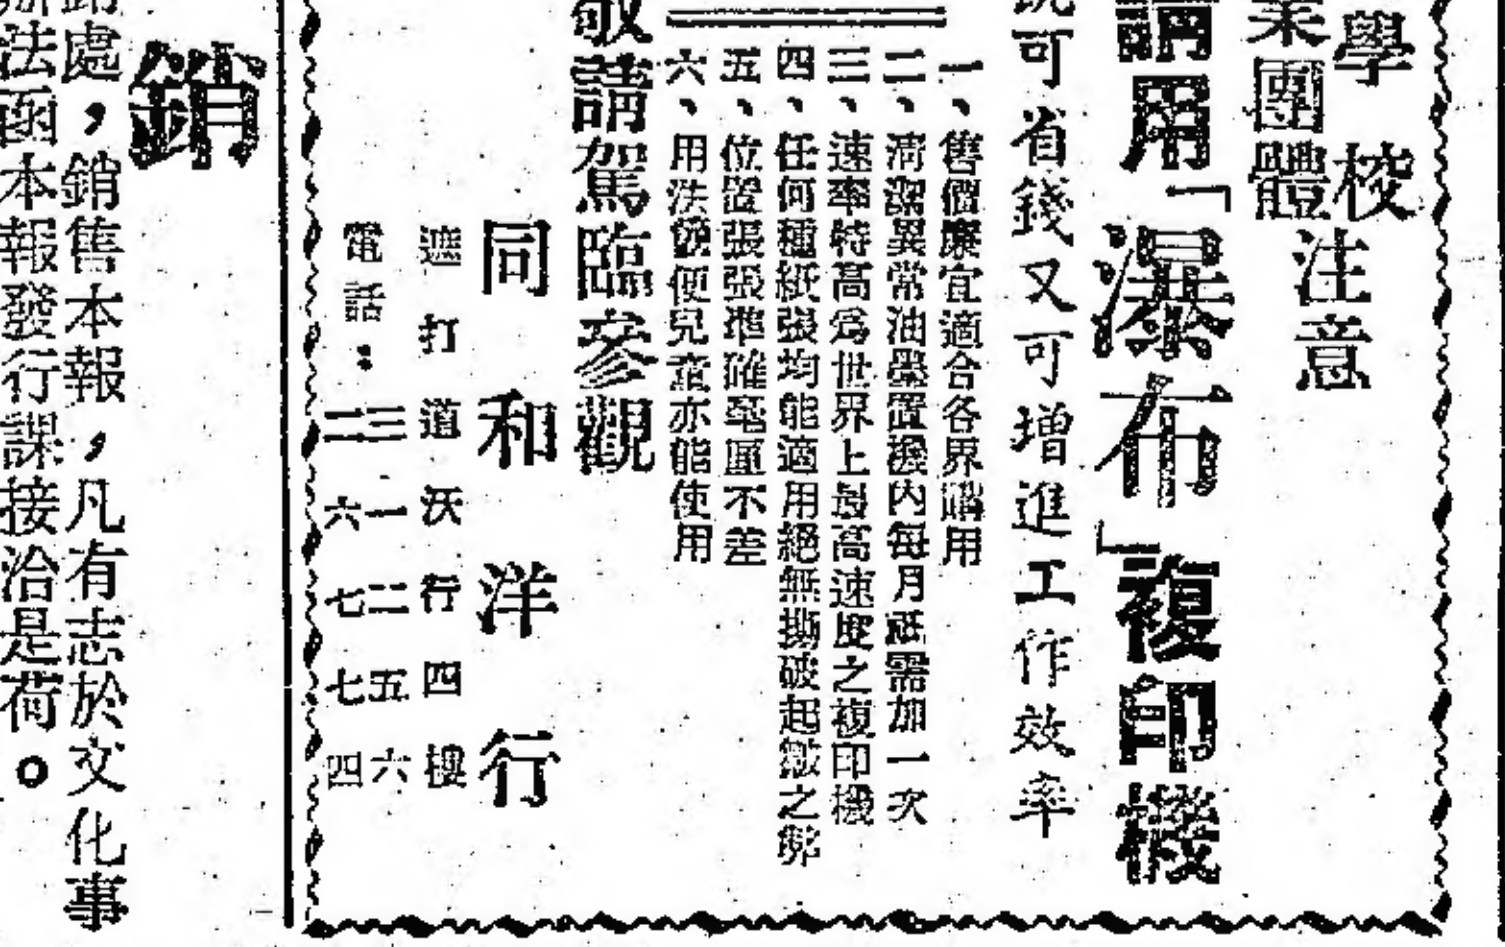 學校
業團體
注意
請用「瀑布」複印機
既可省錢又可增進工作效率
一、售價廉宜適合各界購用
二、清潔異常油墨置機內每月祇需加一次
三、速率特高爲世界上最高速度之複印機
四、任何種紙張均能適用絕無撕破起皺之弊
五、位置張張準確毫厘不差
六、用法簡便兒童亦能使用
敬請駕臨參觀
同和洋行
遮打道沃行四樓
電話：三一二五六
二六七七四
銷
銷處，銷售本報，凡有志於文化事
辦法函本報發行課接洽是荷。